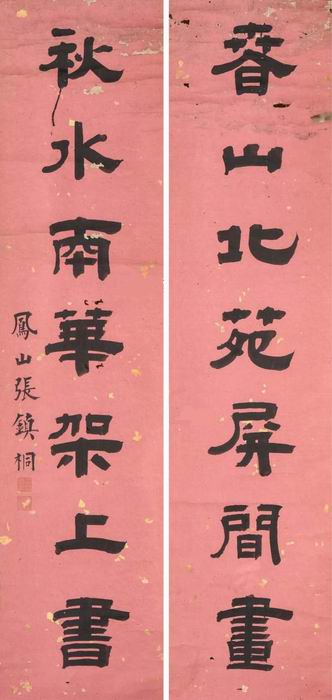 春山北苑屏間畫
秋水南華架上書
鳳山張鎮桐